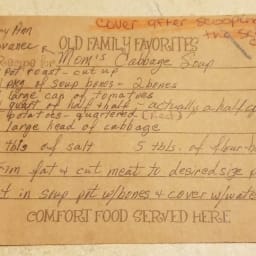 Cover after scooping
OLD FAMILY FAVORITES
for Mom's Cabbage Soup
pot roast - cut up
pkg of soup bones - 2 bones
large can of tomatoes
quart of half & half - actually a half
potatoes - quartered (Red)
large head of cabbage
tbls of salt 5 tbls. of flour
fat & cut meat to desired size
in soup pot w/bones & cover w/water
COMFORT FOOD SERVED HERE